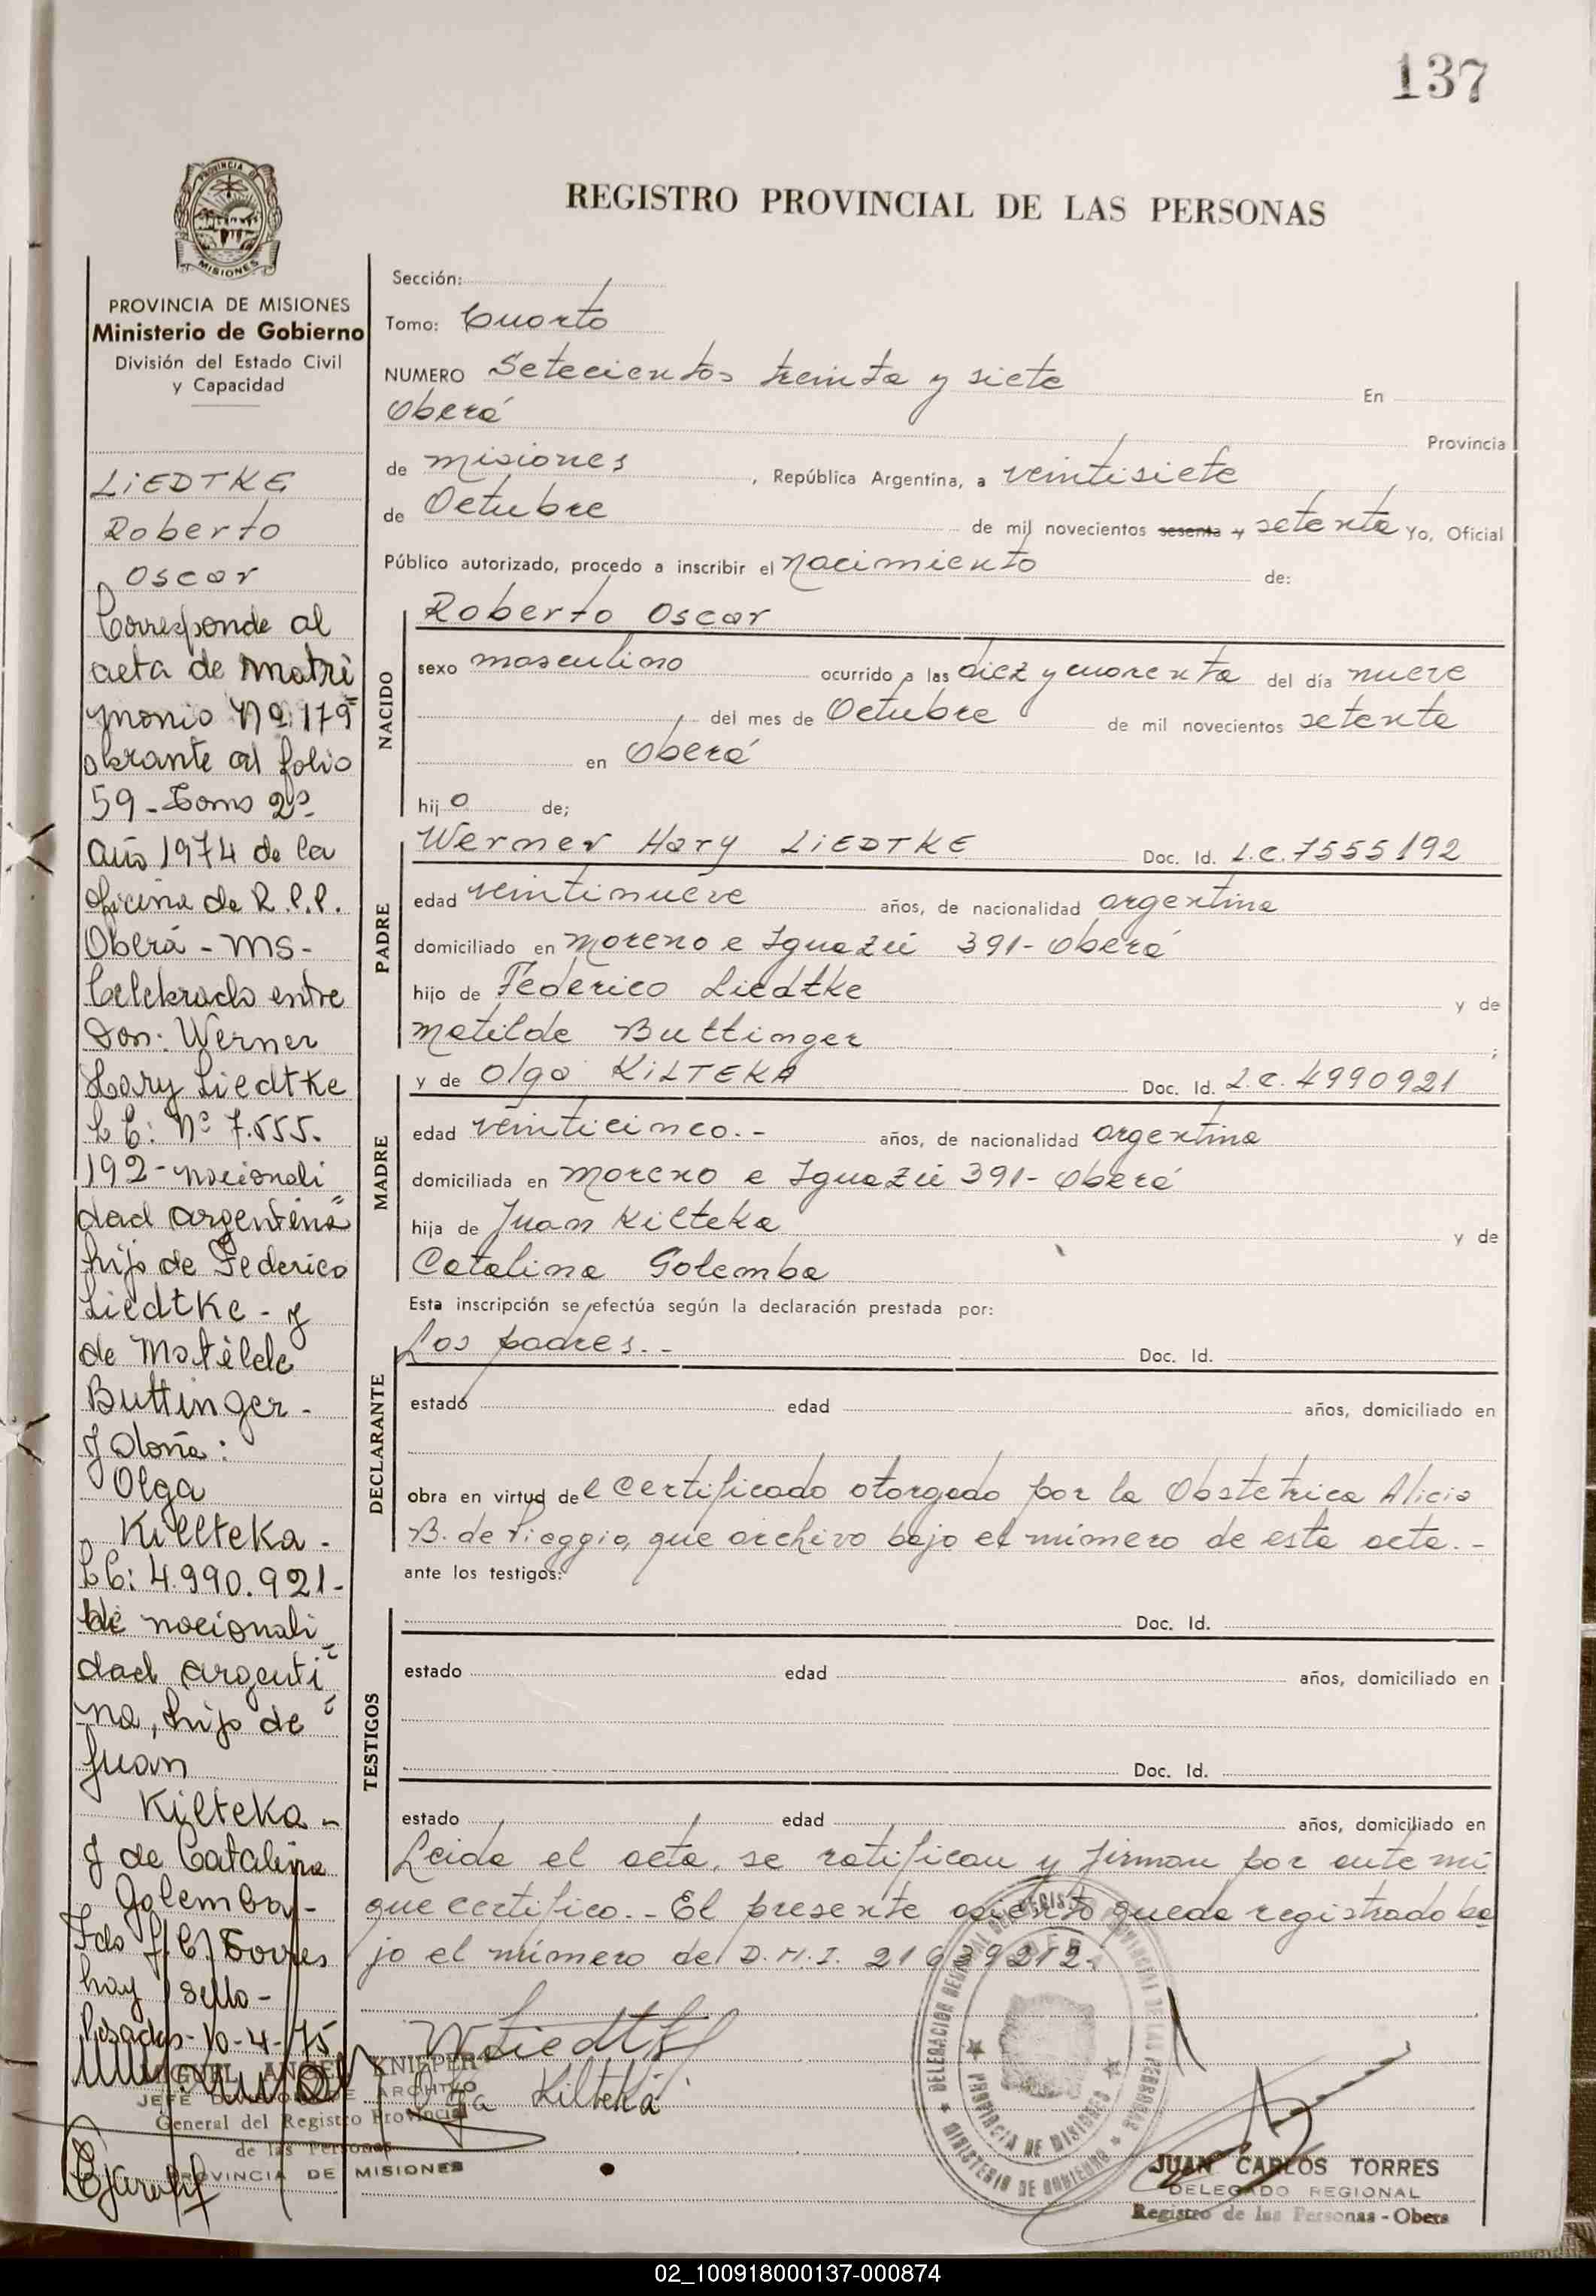 137
PROVINCIA DE MISIONES
REGISTRO PROVINCIAL DE LAS PERSONAS
PROVINCIA DE MISIONES
Ministerio de Gobierno
División del Estado Civil
y Capacidad
LiEDTKE
Roberto
Oscar
Corresponde al
acta de Matri
monio Nº 179
obrante al folio
59 - Tomo 2º
año 1974 de la
oficina de R.P.P.
Oberá - Ms -
Celebrado entre
Don: Werner
Hary Liedtke
L E: Nº 7.555.
192 - nacionali
dad argentina
hijo de Federico
Liedtke - y
de Matilde
Buttinger -
y doña:
Olga
Kilteka -
L C: 4.990.921 -
de nacionali
dad argenti
na, hija de
Juan
Kilteka -
y de Catalina
Golemba -
Fdo J. C. Torres
hay sello -
Posadas - 10-4-75
MIGUEL ANGEL KNIEPER
JEFE DE ARCHIVO
General del Registro Provincial
de las Personas
PROVINCIA DE MISIONES
Sección:
Tomo: Cuarto
NUMERO Setecientos treinta y siete En
Oberá Provincia
de misiones, República Argentina, a veintisiete
de Octubre de mil novecientos sesenta y setenta Yo, Oficial
Público autorizado, procedo a inscribir el nacimiento de:
NACIDO
Roberto Oscar
sexo masculino ocurrido a las diez y cuarenta del día nueve
del mes de Octubre de mil novecientos setenta
en Oberá
hijo de;
PADRE
Werner Hary LiEDTKE Doc. Id. L.E. 7555192
edad veintinueve años, de nacionalidad argentina
domiciliado en Moreno e Iguazú 391- Oberá
hijo de Federico Liedtke y de
Matilde Buttinger ;
MADRE
y de Olga KiLTEKA Doc. Id. L.C. 4990921
edad veinticinco.- años, de nacionalidad argentina
domiciliada en Moreno e Iguazú 391- Oberá
hija de Juan Kilteka y de
Catalina Golemba
Esta inscripción se efectúa según la declaración prestada por:
DECLARANTE
Los padres.- Doc. Id.
estado edad años, domiciliado en
obra en virtud del certificado otorgado por la Obstetrica Alicia
B. de Pioggio, que archivo bajo el número de esta acta.-
ante los testigos:
TESTIGOS
Doc. Id.
estado edad años, domiciliado en
Doc. Id.
estado edad años, domiciliado en
Leida el acta, se ratifican y firman por ante mi
que certifico.- El presente asiento queda registrado ba
jo el número de D.N.I. 21 9212.
W Liedtke
Olga Kilteka
DELEGACION REGIONAL DEL REGISTRO PROVINCIAL DE LAS PERSONAS
MINISTERIO DE GOBIERNO
PROVINCIA DE MISIONES
JUAN CARLOS TORRES
DELEGADO REGIONAL
Registro de las Personas - Obera
02_100918000137-000874